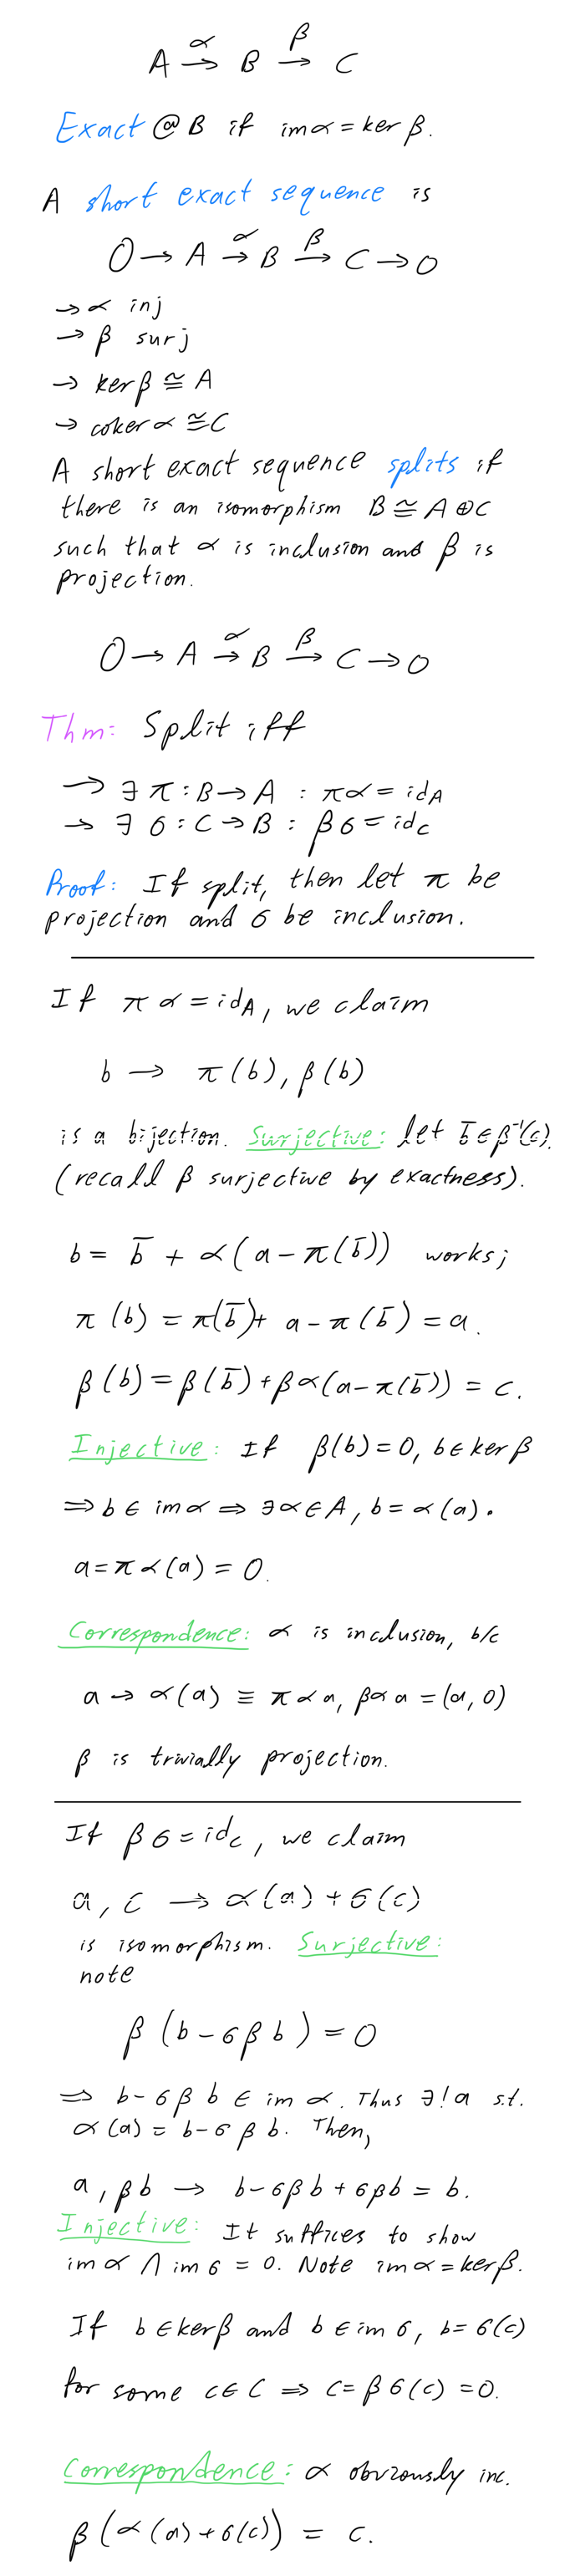 A →α B →β C
Exact @ B if im α = ker β.
A short exact sequence is
O → A →α B →β C → O
→ α inj
→ β surj
→ ker β ≅ A
→ coker α ≅ C
A short exact sequence splits if
there is an isomorphism B ≅ A ⊕ C
such that α is inclusion and β is
projection.
O → A →α B →β C → O
Thm: Split iff
→ ∃ π : B → A : πα = id_A
→ ∃ σ : C → B : βσ = id_C
Proof: If split, then let π be
projection and σ be inclusion.
If πα = id_A, we claim
b → π(b), β(b)
is a bijection. Surjective: let b̄ ∈ β⁻¹(c).
(recall β surjective by exactness).
b = b̄ + α(a - π(b̄)) works;
π(b) = π(b̄) + a - π(b̄) = a.
β(b) = β(b̄) + βα(a - π(b̄)) = c.
Injective: If β(b) = 0, b ∈ ker β
⇒ b ∈ im α ⇒ ∃ α ∈ A, b = α(a).
a = πα(a) = 0.
Correspondence: α is inclusion, b/c
a → α(a) ≡ παa, βαa = (a, 0)
β is trivially projection.
If βσ = id_C, we claim
a, c → α(a) + σ(c)
is isomorphism. Surjective:
note
β(b - σβb) = 0
⇒ b - σβb ∈ im α. Thus ∃! a s.t.
α(a) = b - σβb. Then,
a, βb → b - σβb + σβb = b.
Injective: It suffices to show
im α ∩ im σ = 0. Note im α = ker β.
If b ∈ ker β and b ∈ im σ, b = σ(c)
for some c ∈ C ⇒ c = βσ(c) = 0.
Correspondence: α obviously inc.
β(α(a) + σ(c)) = c.